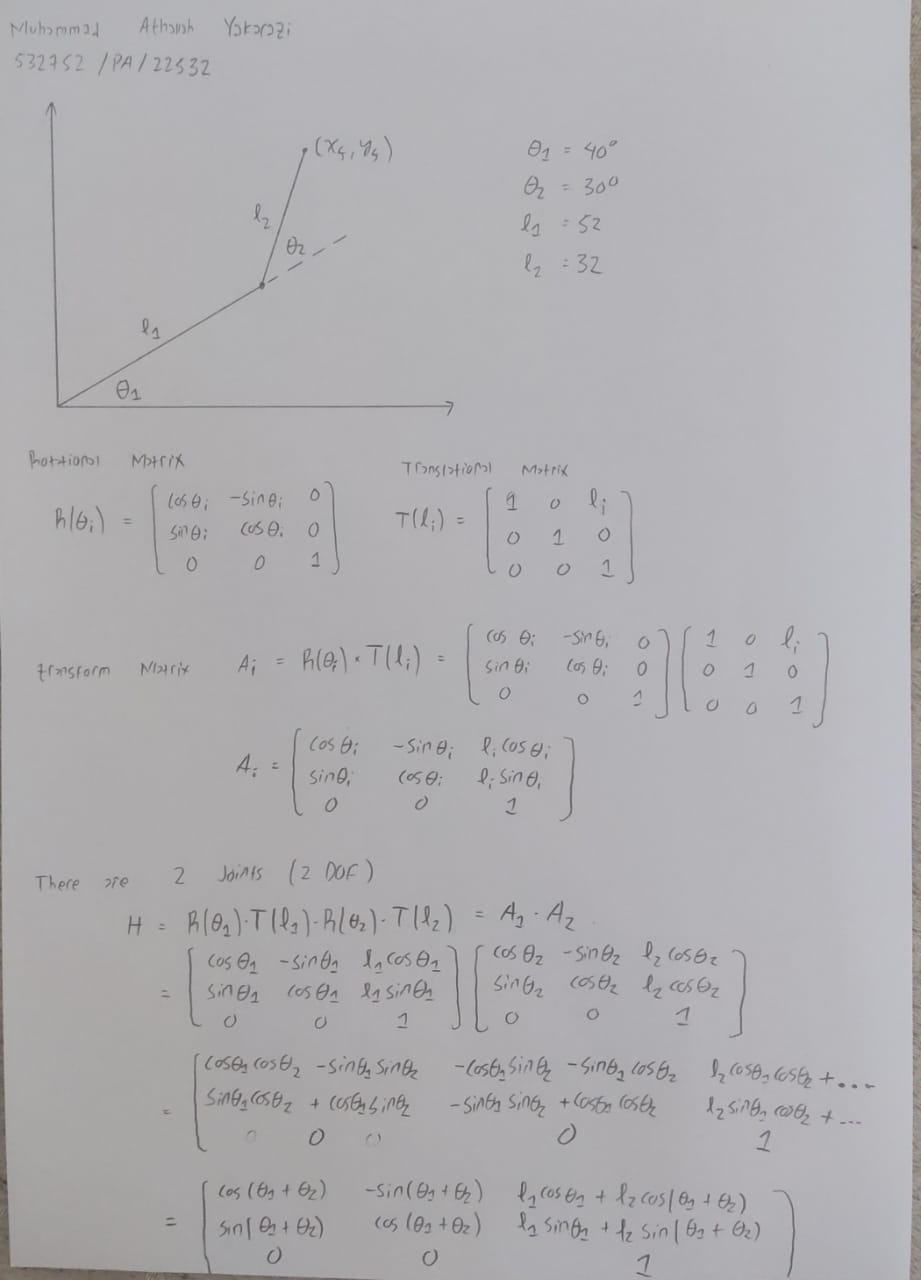 Muhammad Athallah
532752 /PA/22532
(x₄, y₄)
l₂
θ₂
l₁
θ₁
θ₁ = 40°
θ₂ = 30°
l₁ = 52
l₂ = 32
Rotational Matrix
R(θᵢ) = [ cosθᵢ -sinθᵢ 0
sinθᵢ cosθᵢ 0
0 0 1 ]
Translational Matrix
T(lᵢ) = [ 1 0 lᵢ
0 1 0
0 0 1 ]
transform Matrix Aᵢ = R(θᵢ) · T(lᵢ) = [ cos θᵢ -sinθᵢ 0 ] [ 1 0 lᵢ
sinθᵢ cosθᵢ 0 0 1 0
0 0 1 ] 0 0 1 ]
Aᵢ = [ cosθᵢ -sinθᵢ lᵢ cosθᵢ
sinθᵢ cosθᵢ lᵢ sinθᵢ
0 0 1 ]
There are 2 Joints (2 DOF)
H = R(θ₁)·T(l₁)·R(θ₂)·T(l₂) = A₁ · A₂
= [ cosθ₁ -sinθ₁ l₁cosθ₁ ] [ cosθ₂ -sinθ₂ l₂cosθ₂
sinθ₁ cosθ₁ l₁sinθ₁ sinθ₂ cosθ₂ l₂cosθ₂
0 0 1 ] 0 0 1 ]
= [ cosθ₁cosθ₂ -sinθ₁sinθ₂ -cosθ₁sinθ₂ -sinθ₁cosθ₂ l₂cosθ₁cosθ₂ +...
sinθ₁cosθ₂ + cosθ₁sinθ₂ -sinθ₁sinθ₂ +cosθ₁cosθ₂ l₂sinθ₁cosθ₂ +...
0 0 1
= [ cos(θ₁+θ₂) -sin(θ₁+θ₂) l₁cosθ₁ + l₂cos(θ₁+θ₂)
sin(θ₁+θ₂) cos(θ₁+θ₂) l₁sinθ₁ + l₂sin(θ₁+θ₂)
0 0 1 ]